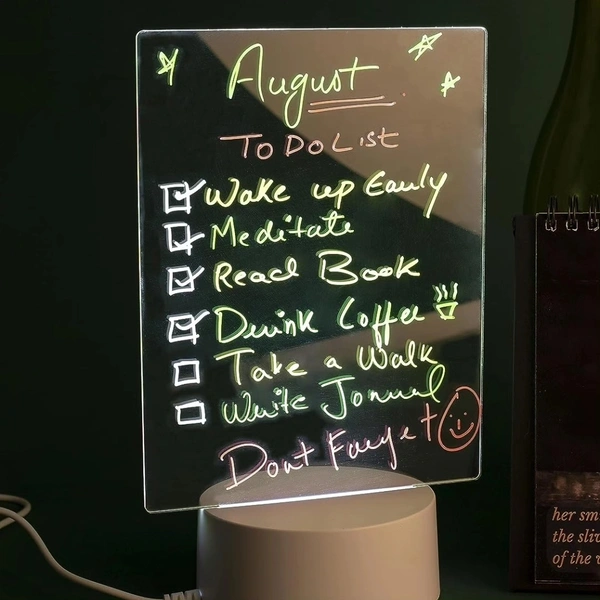 August
To Do List
Wake up Early
Meditate
Read Book
Drink Coffee
Take a Walk
Write Jornual
Dont Forget
her
the
of the